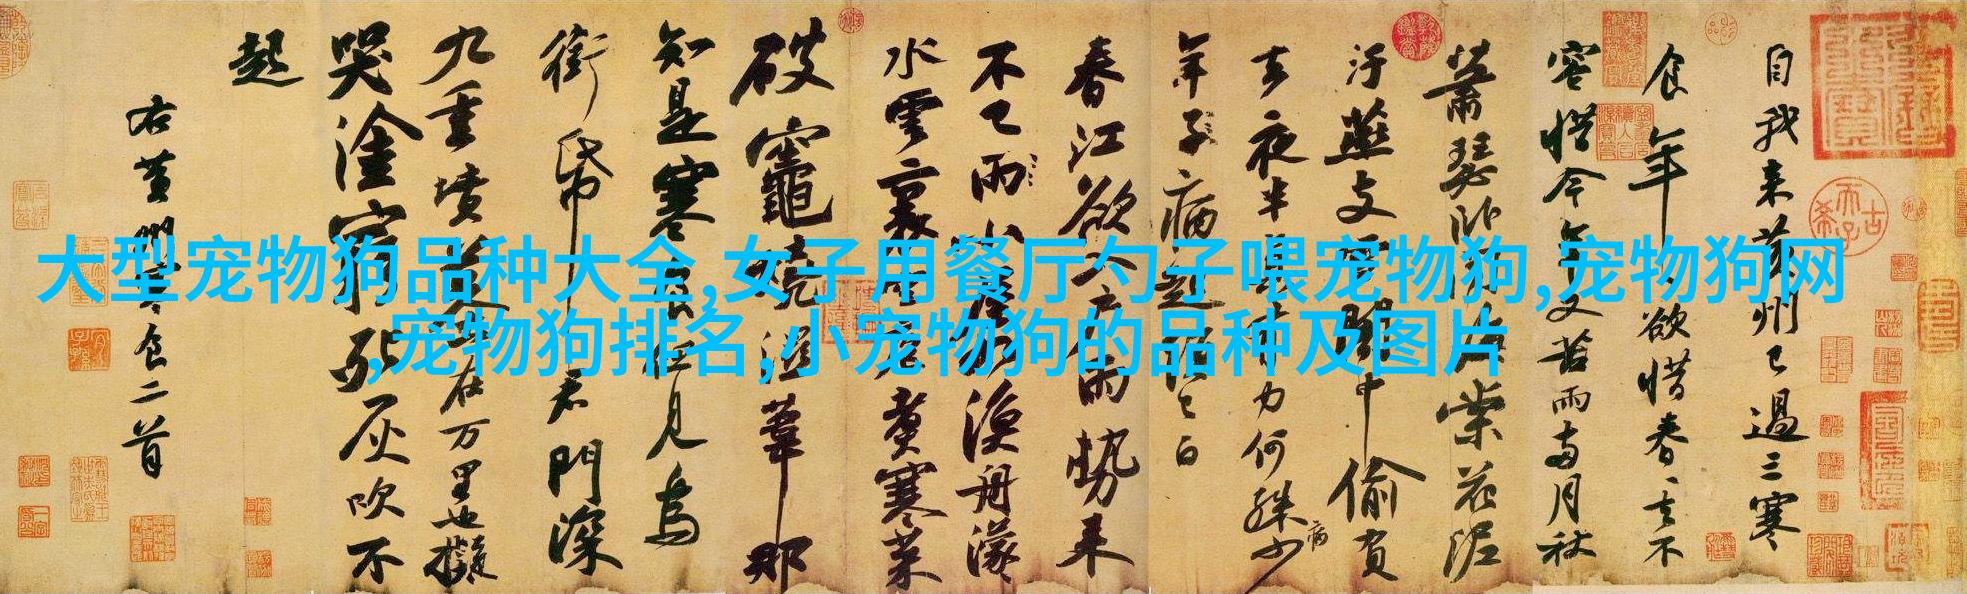 大型宠物狗品种大全,女子用餐厅勺子喂宠物狗,宠物狗网
,宠物狗排名,小宠物狗的品种及图片
自我来黄州已過三寒
食年〻欲惜春〻去不
容惜今年又苦雨兩月秋
蕭瑟卧聞海棠花泥
汙燕支雪闇中偷負
去夜半真有力何殊少
病
年子病起須已白
春江欲入户雨勢来
不已雨小屋如漁舟濛
水雲裏空庖煮寒菜
破竈燒濕葦那
知是寒食但見烏
銜帋君門深
九重墳墓在万里也擬
哭塗窮死灰吹不
起
右黄州寒食二首